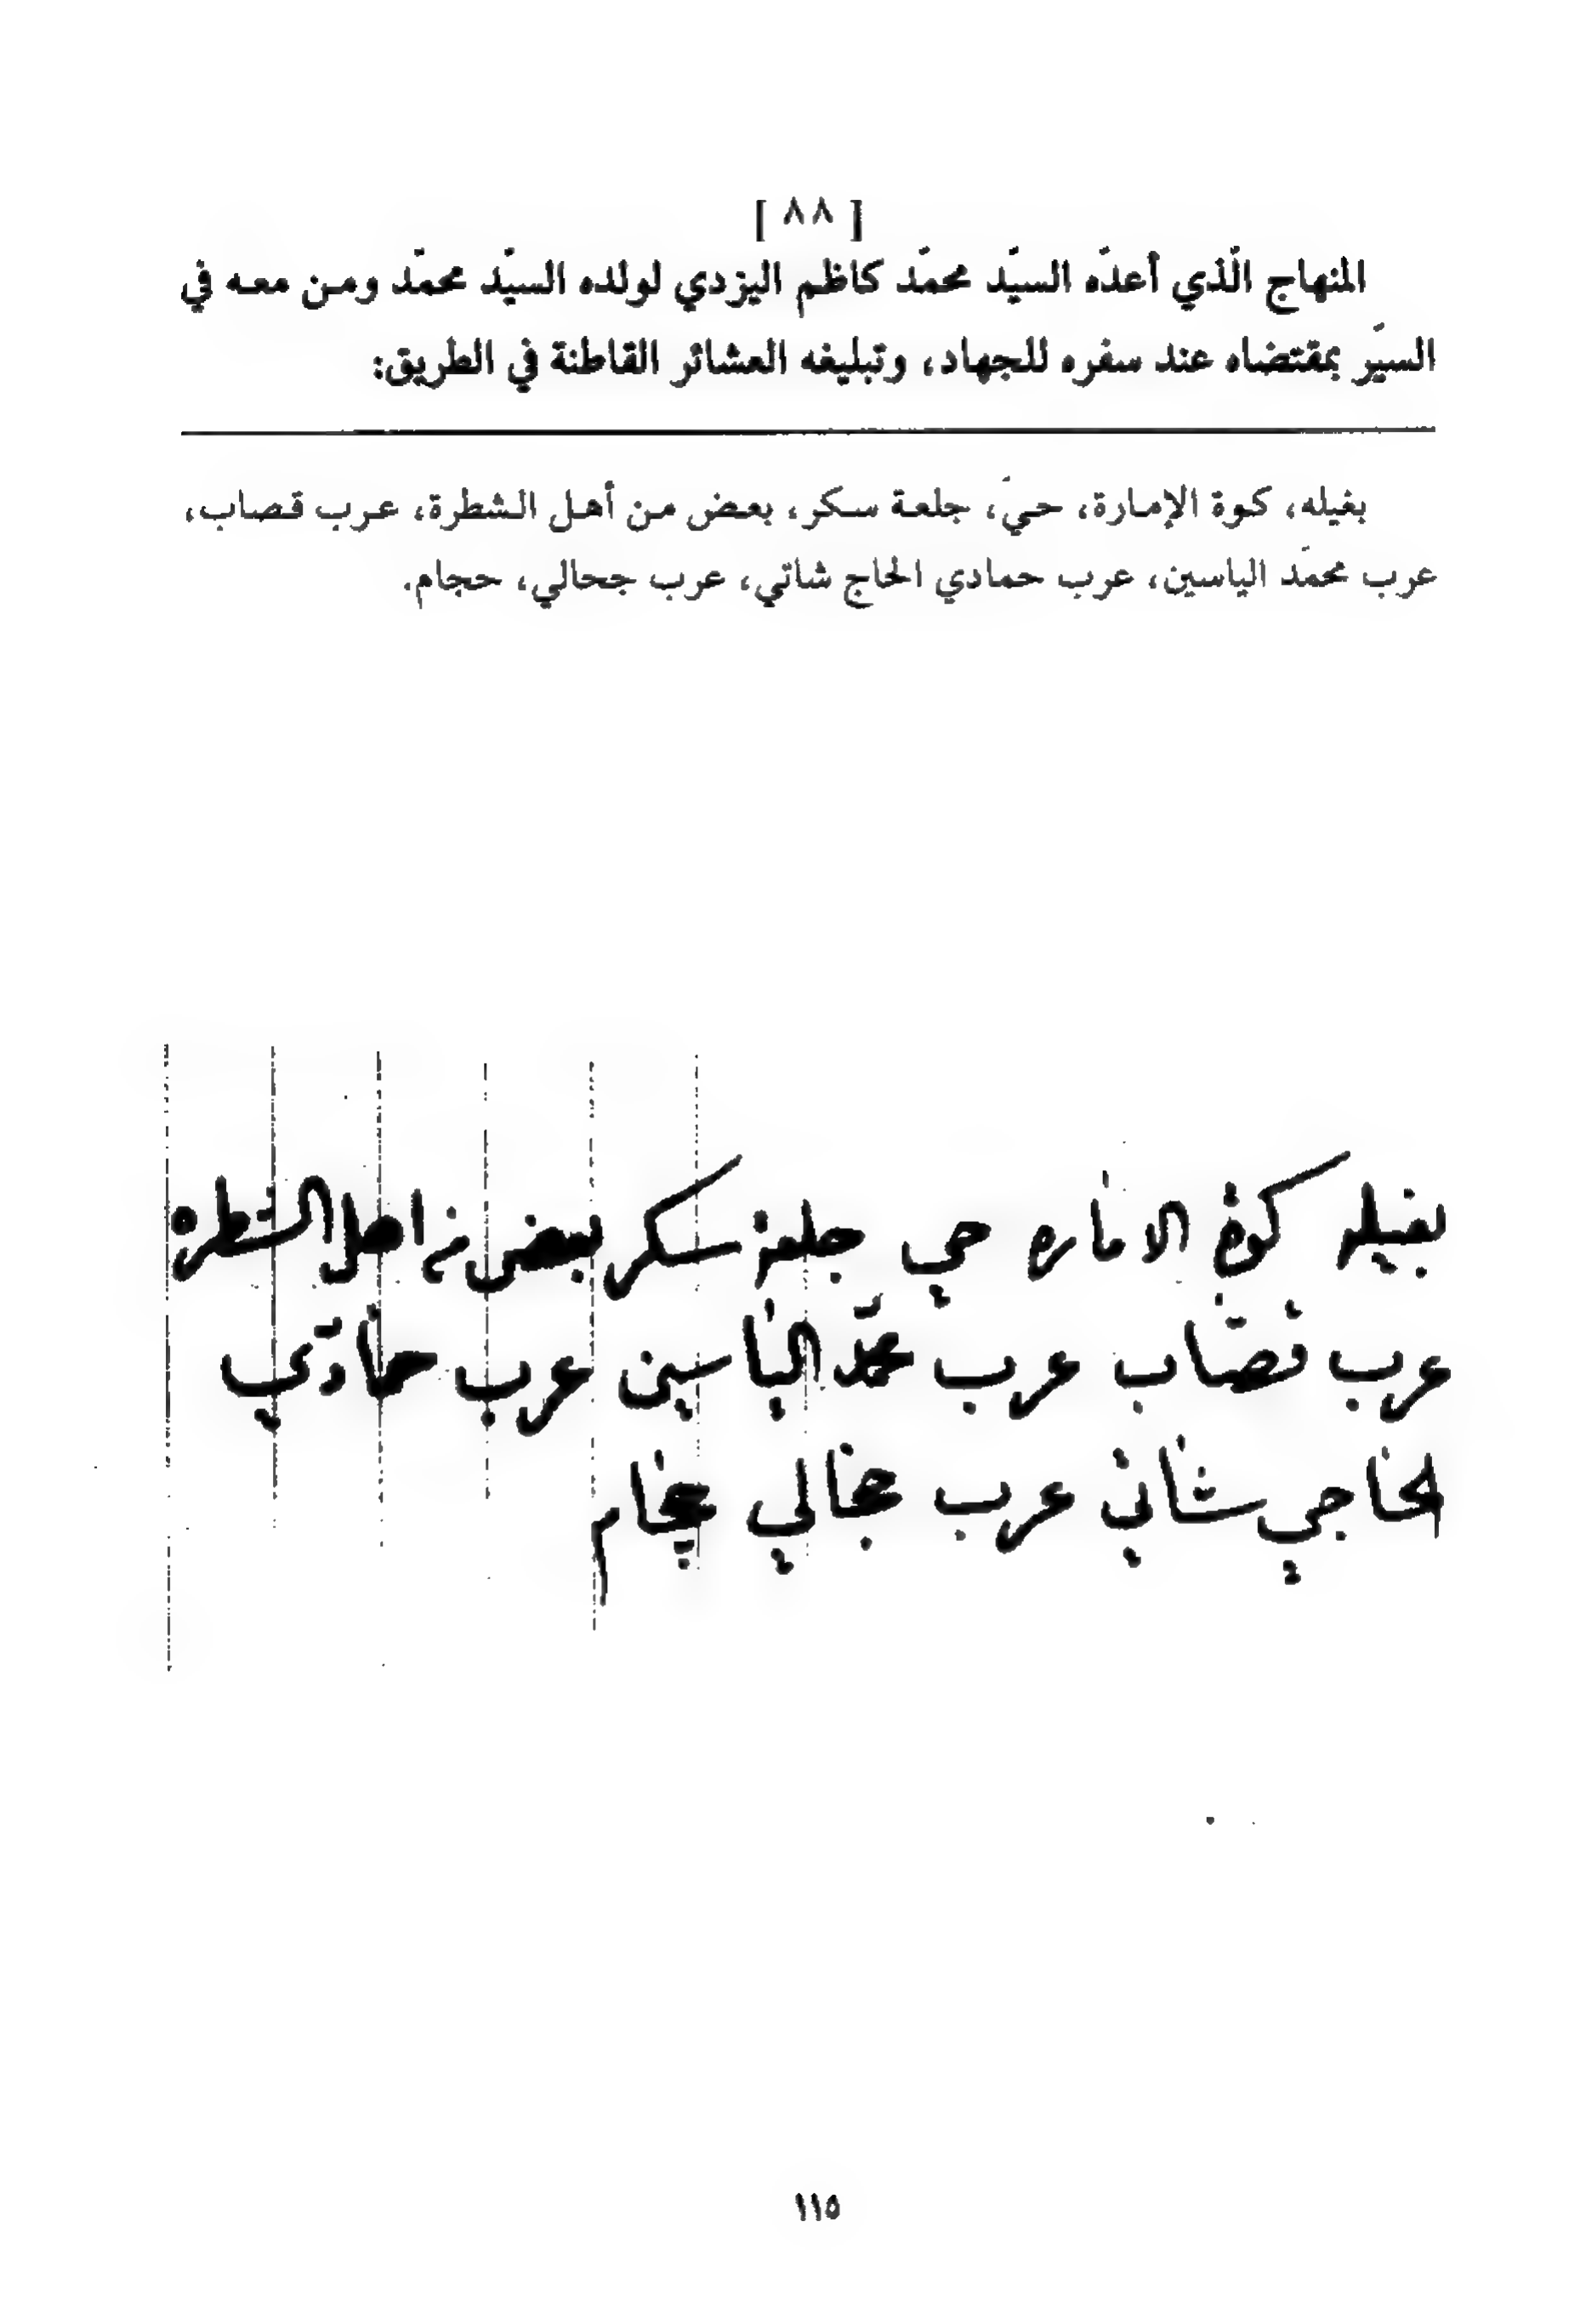 [ ٨٨ ]
المنهاج الّذي أعدّه السيّد محمّد كاظم اليزدي لولده السيّد محمّد ومن معه في
السيّر بمقتضاه عند سفره للجهاد، وتبليغه العشائر القاطنة في الطريق:
بغيله، كوة الإمارة، حيّ، جلعة سكر، بعض من أهل الشطرة، عرب قصاب،
عرب محمّد الياسين، عرب حمادي الحاج شاتي، عرب جحالي، حجام.
بغيله كوة الاماره حي جلعة سكر بعض من اهل الشطرة
عرب قصاب عرب محمد الياسين عرب حمادي
الحاجي شاتي عرب جحالي حجام
١١٥